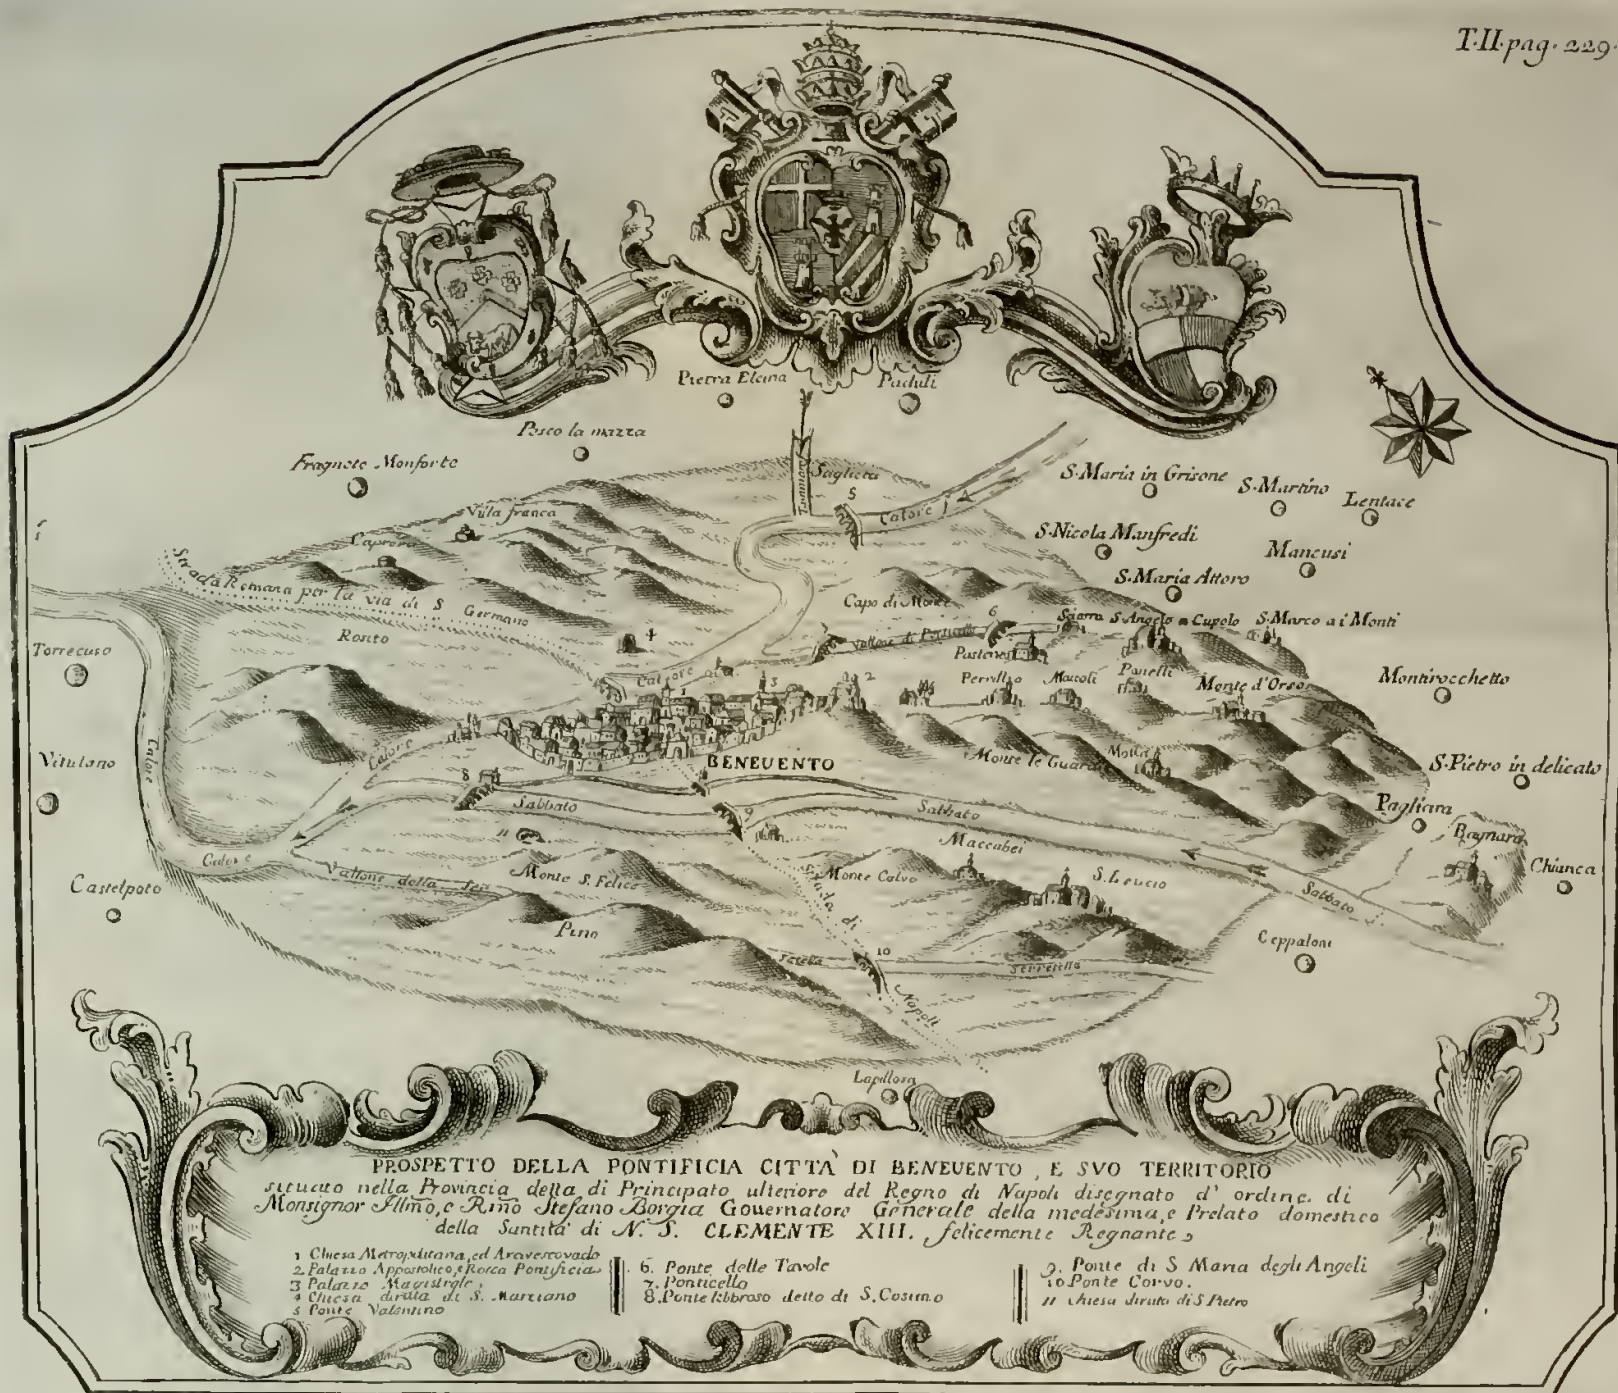 T.II.pag. 229.
Pietra Elcina
Paduli
Pesco la mazza
Fragneto Monforte
Saglieta
S. Maria in Grisone
S. Martino
Lentace
5
Calore
Villa franca
S. Nicola Manfredi
Mancusi
Strada Romana per la via di S. Germano
S. Maria Attoro
Capo di Monte
6
Sciarra
S. Angelo a Cupolo
S. Marco a i Monti
Rosito
4
Vallone di Ponticello
Torrecuso
Calore
3
2
Perrillo
Maccoli
Panelli
Monte d'Orso
Montirocchetto
Calore
Calore
Vitulano
BENEUENTO
Monte le Guard
Motta
S. Pietro in delicato
8
Sabbato
Sabbato
9
Pagliara
Bagnara
11
Maccabei
Calore
Vallone della
Monte S. Felice
Monte Calvo
S. Leucio
Chianca
Castelpoto
Sabbato
Strada di Napoli
Pino
10
Ceppaloni
Serretella
Lapillosa
PROSPETTO DELLA PONTIFICIA CITTÀ DI BENEUENTO, E SVO TERRITORIO
situato nella Provincia detta di Principato ulteriore del Regno di Napoli disegnato d' ordine di
Monsignor Illmo, e Rmo Stefano Borgia Gouernatore Generale della medesima, e Prelato domestico
della Santità di N. S. CLEMENTE XIII. felicemente Regnante
1 Chiesa Metropolitana, ed Arcivescovado
2 Palazzo Appostolico, e Rocca Pontificia
3 Palazzo Magistrale
4 Chiesa diruta di S. Marciano
5 Ponte Valentino
6. Ponte delle Tavole
7. Ponticello
8. Ponte lebbroso detto di S. Cosimo
9. Ponte di S Maria degli Angeli
10 Ponte Corvo.
11 chiesa diruta di S Pietro